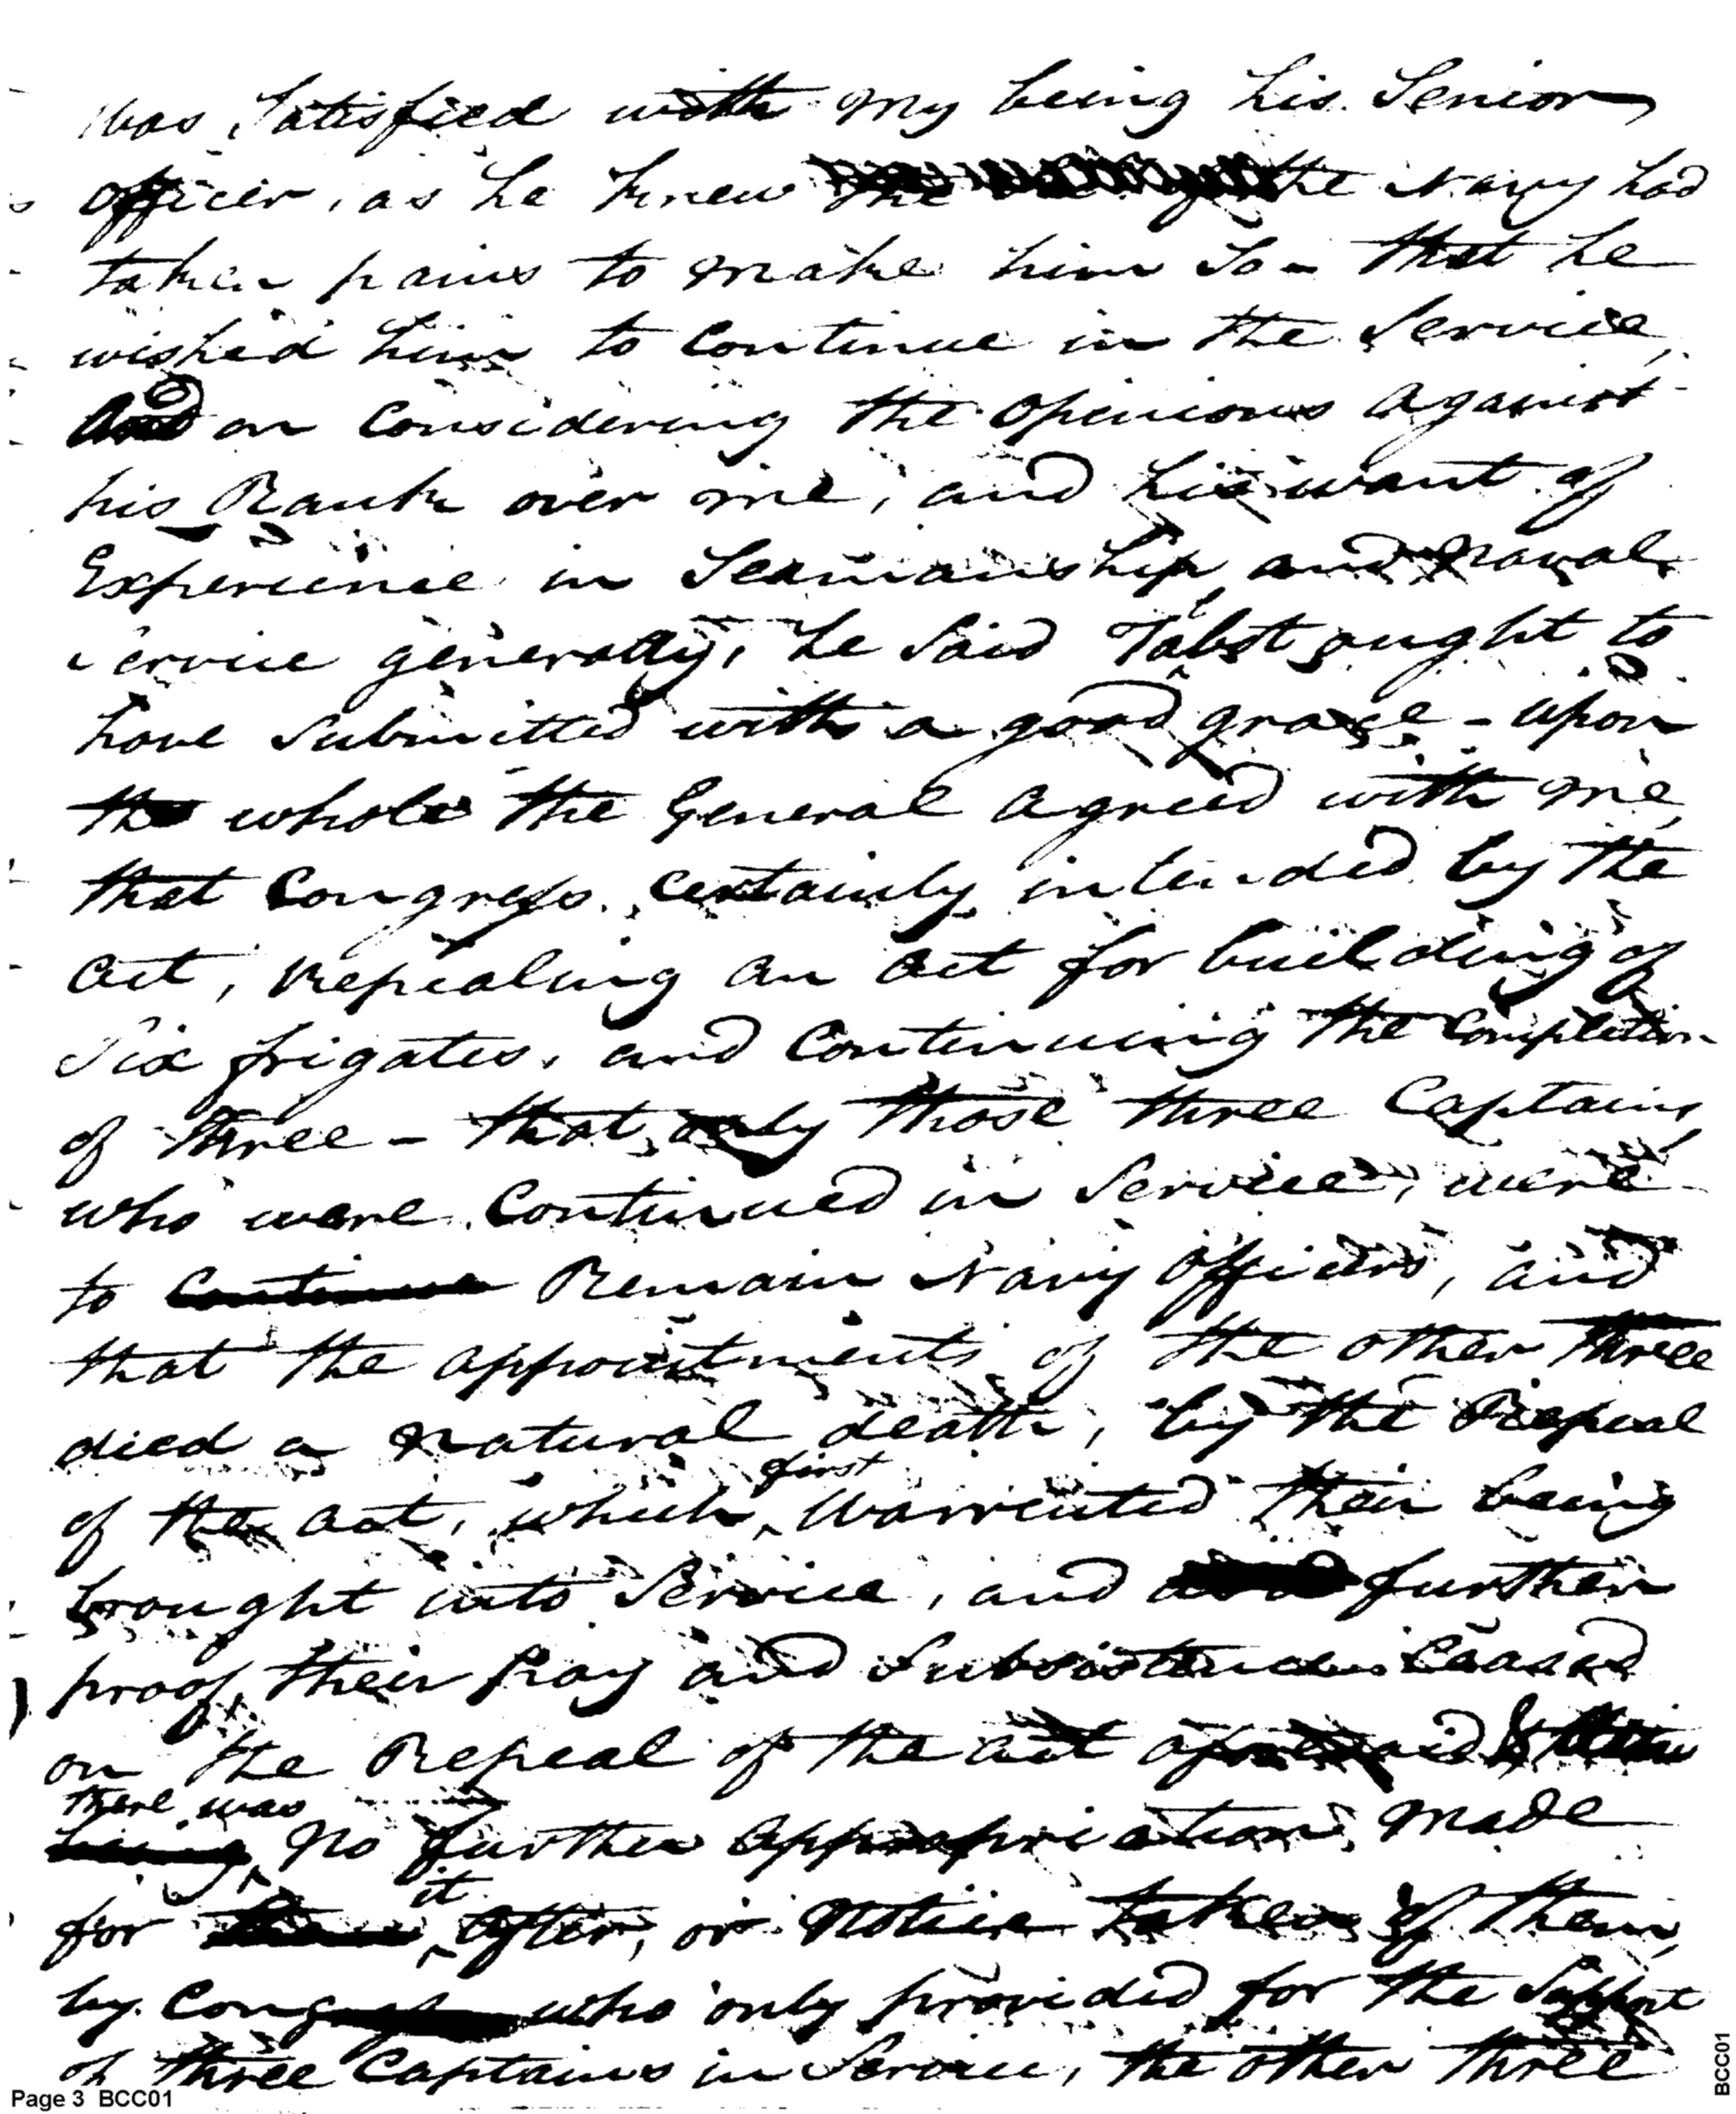 was Satisfied with my being his Senior
officer, as he knew the Navy had
taken pains to make him So - that he
wished him to Continue in the Service,
and on Considering the Opinions against
his Rank over me, and his want of
Experience in Seamanship and Naval
Service generally, he Said Talbot ought to
have Submitted with a good grace - upon
the whole the General agreed with me,
that Congress certainly intended by the
act, Repealing an act for building of
Six frigates, and Continuing the Completion
of three - that only those three Captains
who were Continued in Service, were
to Continue Remain Navy Officers, and
that the appointments of the other three
died a natural death, by the Repeal
first
of the act, which Warrented their being
brought into Service, and further
proof, their Pay and Subsistence Ceased
on the Repeal of the act aforesaid &
there was
being no further appropriation made
it
for after, or Notice taken of them,
by Congress who only provided for the Support
of three Captains in Service, the other three
Page 3 BCC01
BCC01